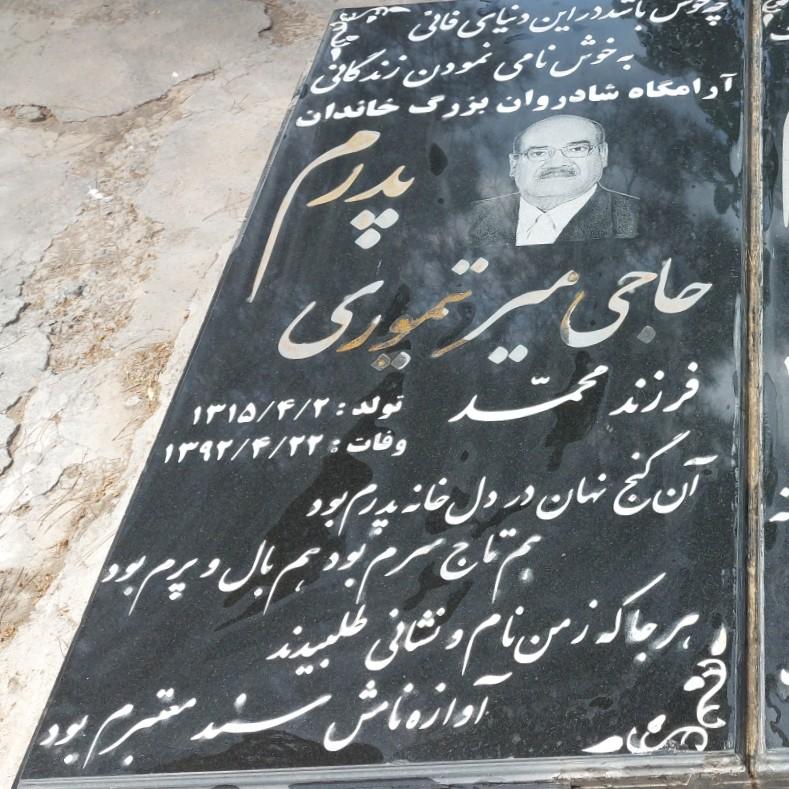 چه خوش باشد در این دنیای فانی
به خوش نامی نمودن زندگانی
آرامگاه شادروان بزرگ خاندان
پدرم
حاجی میر تیموری
فرزند محمّد
تولد : ۱۳۱۵/۴/۲
وفات : ۱۳۹۲/۴/۲۲
آن گنج نهان در دل خانه پدرم بود
هم تاج سرم بود هم بال و پرم بود
هر جا که ز من نام و نشانی طلبیدند
آوازه نامش سند معتبرم بود